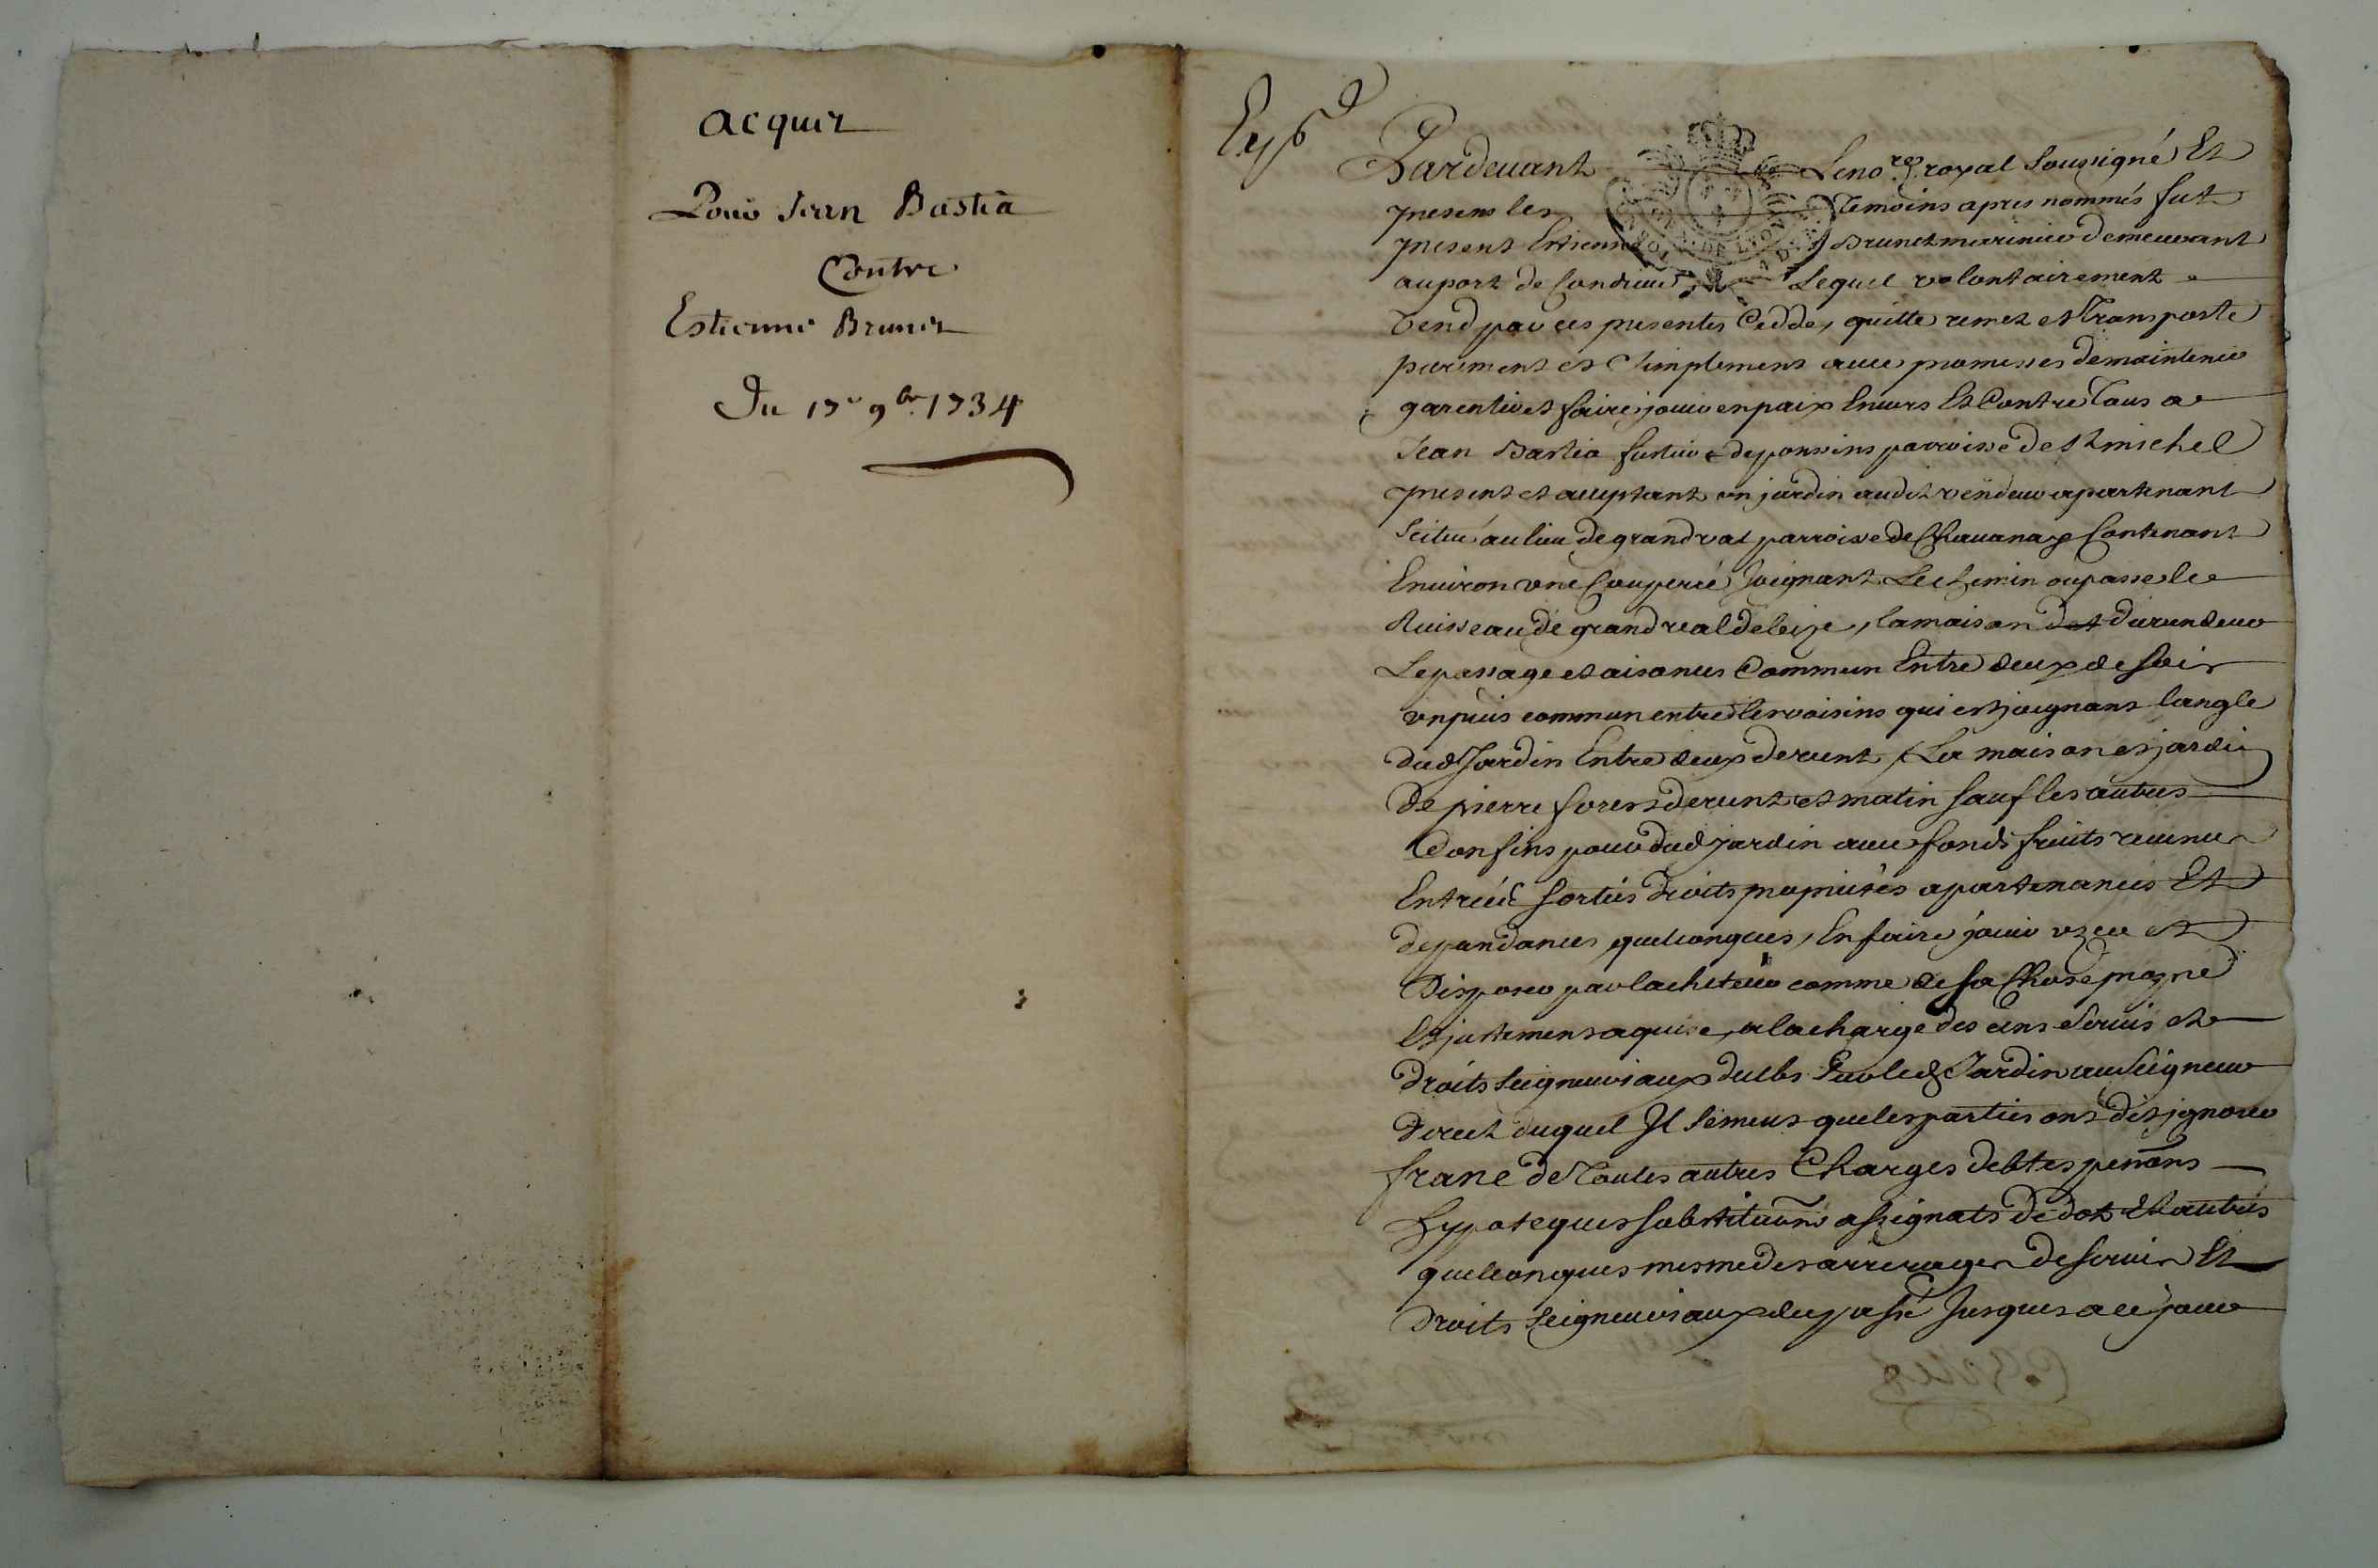 acquit
Pour Jean Bastia
Contre
Estienne Brunet
Du 17e 9bre 1734
Exp.d
Pardevant Le no.re royal Soussigné Et
presens les Temoins apres nommés fut
present Estienne Brunet marinier demeurant
au port de Condrieu Lequel volontairement
Vend par ces presentes Cedde, quitte remet et Transporte
purement et Simplement avec promesses de maintenir
garentir et faire jouir en paix Envers Et Contre Tous a
Jean Bastia de ponsins parroisse de St michel
present et acceptant un jardin audit vendeur apartenant
Scitué au lieu de grandval parroisse de Chavanay Contenant
Environ une Couperée Joignant Le chemin ou passe le
Ruisseau de grandval de bize, la maison du vendeur
Le passage et aisances Commun Entre deux de soir
un puis commun entre les voisins qui est joignant langle
dud Jardin Entre deux de vent, La maison et jardin
de pierre forest de vent et matin sauf les autres
Confins pour dud jardin avec fonds fruits revenus
Entrées Sorties droits proprietés apartenances Et
dependances quelconques, En faire jouir uzer et
Disposer par lacheteur comme de sa Chose propre
Et justement aquise, a la charge des cens Servis et
droits seigneuriaux deubs Sur led Jardin au Seigneur
direct duquel Il Semeut que les parties ont dit ignorer
franc de Toutes autres Charges debtes penõns
hypoteques substituõns assignats de dot et autres
quelconques mesme des arrerages de servis Et
droits Seigneuriaux du passé Jusques a ce jour